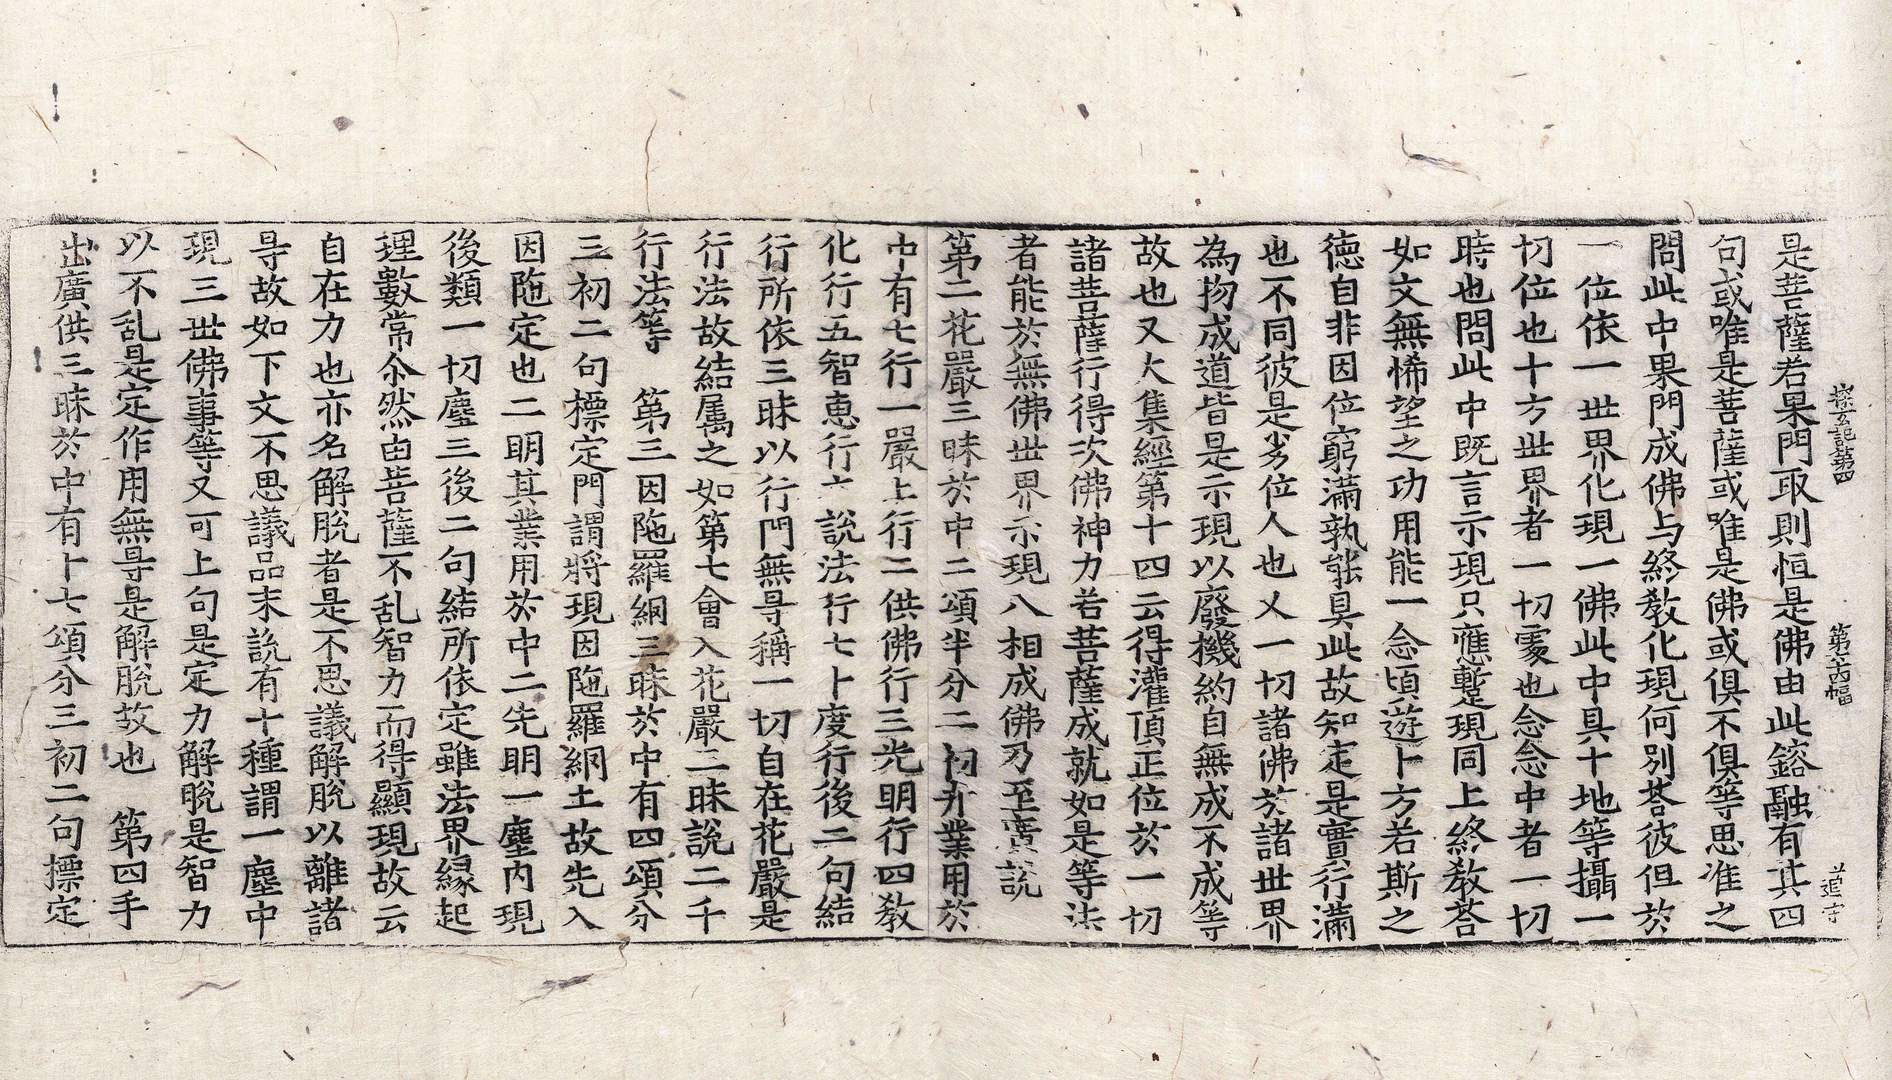 探玄記第四 第芮幅  道守
是菩薩若果門取則恒是佛由此鎔融有其四
句或唯是菩薩或唯是佛或俱不俱等思准之
問此中果門成佛与終教化現何別荅彼但於
一位依一世界化現一佛此中具十地等攝一
切位也十方世界者一切䖏也念念中者一切
時也問此中既言示現只應蹔現同上終教荅
如文無悕望之功用能一念頃遊十方若斯之
徳自非因位窮滿孰能具此故知定是實行滿
也不同彼是劣位人也又一切諸佛於諸世界
為物成道皆是示現以廢機約自無成不成等
故也又大集經第十四云得灌頂正位於一切
諸菩薩行得次佛神力若菩薩成就如是等法
者能於無佛世界示現八相成佛乃至廣説
第二花嚴三昧於中二頌半分二初九業用於
中有七行一嚴上行二供佛行三光明行四教
化行五智恵行六説法行七十度行後二句結
行所依三昧以行門無㝵稱一切自在花嚴是
行法故結属之如第七會入花嚴三昧説二千
行法等 第三因陁羅網三昧於中有四頌分
三初二句標定門謂將現因陁羅網土故先入
因陁定也二明其業用於中二先明一塵内現
後類一切塵三後二句結所依定雖法界縁起
理數常尒然由菩薩不乱智力而得顯現故云
自在力也亦名解脱者是不思議解脱以離諸
㝵故如下文不思議品末説有十種謂一塵中
現三世佛事等又可上句是定力解脱是智力
以不乱是定作用無㝵是解脱故也 第四手
出廣供三昧於中有十七頌分三初二句標定